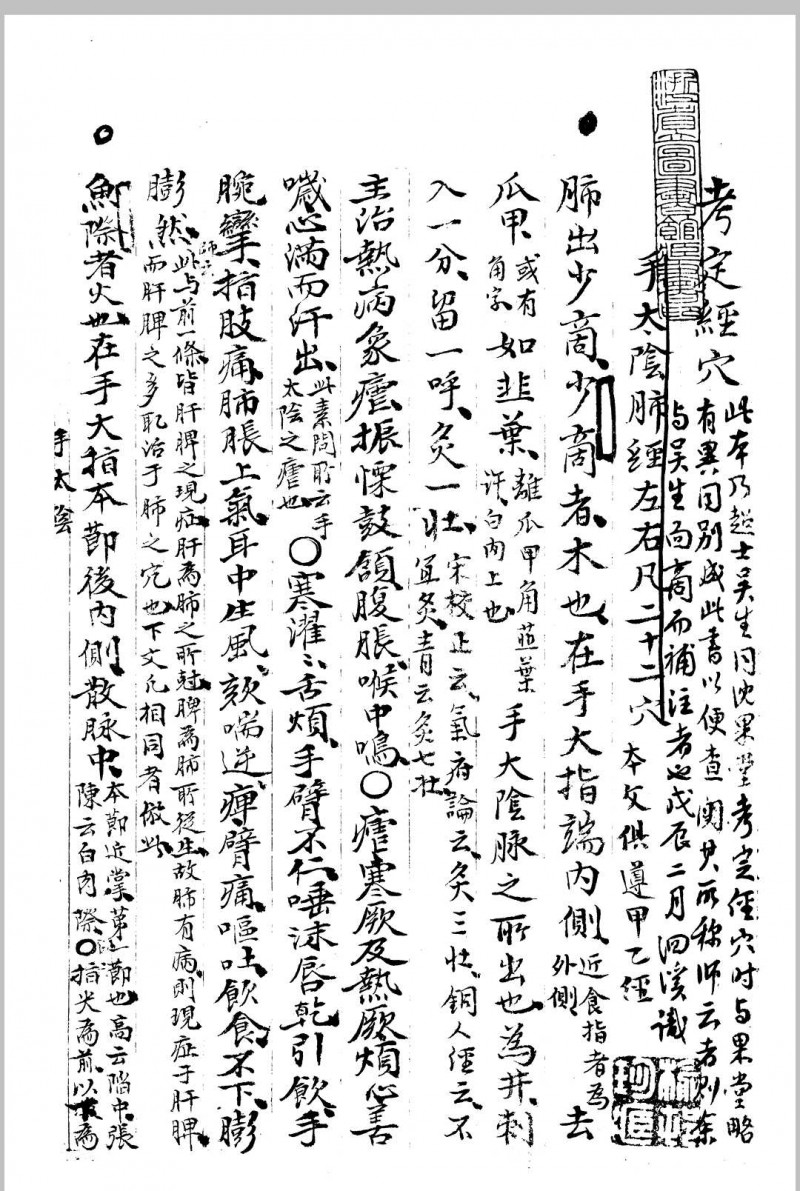 考定經穴
此本乃趙士吳生同沈果堂考定經穴时与果堂略
有異同别成此書以便查閱其所称师云者則余
与吴生面商而補注者也戊辰二月洄溪識
手太陰肺經左右凡二十二穴 本文俱遵甲乙經
肺出少商少商者木也在手大指端内側近食指者為外側去
爪甲或有角字如韭葉離爪甲角韮葉許白肉上也手太陰脉之所出也為井刺
入一分留一呼灸一壮宋校正云氣府論云灸三壮銅人經云不宜灸千青云灸七壮
主治熱病象瘧振慄鼓頷腹脹喉中鳴〇瘧寒厥及熱厥煩心善
噦心滿而汗出此素問所云手太陰之瘧也〇寒濯濯舌煩手臂不仁唾沫唇乾引飲手
腕攣指肢痛肺脹上氣耳中生風欬喘逆痺臂痛嘔吐飲食不下膨
膨然師云此与前一條皆肝脾之現症肝為肺之所尅脾為肺所從生故肺有病則現症于肝脾
而肝脾之多取治于肺之穴也下文凡相同者倣此
魚際者火也在手大指本節後内側散脉中本節近掌第一節也高云陷中張
陳云白肉際〇指尖為前以後為
手太陰